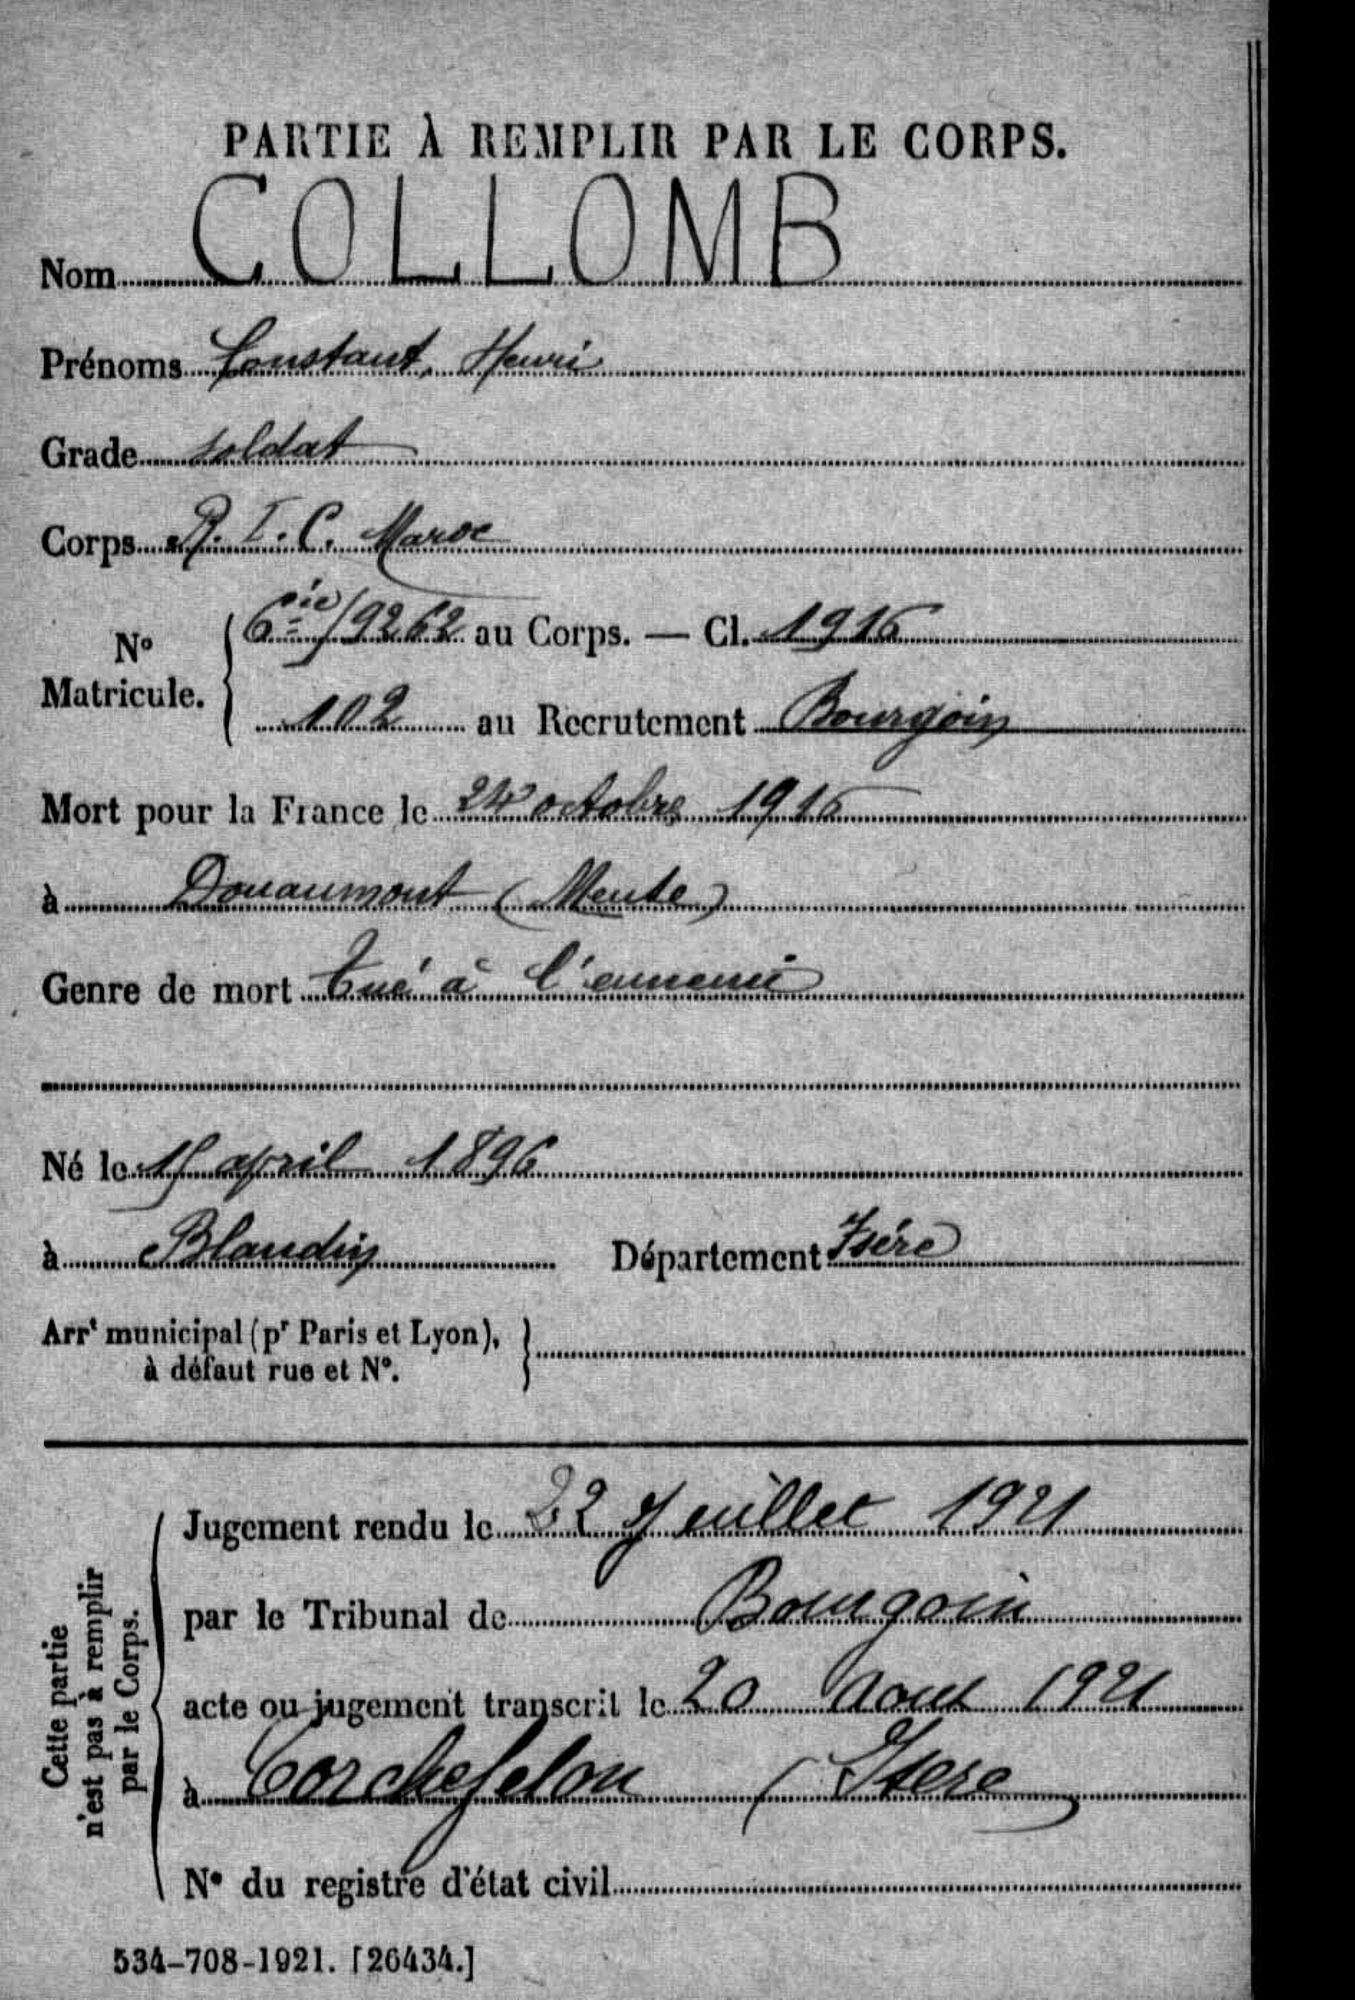 PARTIE À REMPLIR PAR LE CORPS.
Nom COLLOMB
Prénoms Constant, Henri
Grade soldat
Corps R. I. C. Maroc
N° Matricule. { 6ie/9262 au Corps. — Cl. 1916
102 au Recrutement Bourgoin
Mort pour la France le 24 octobre 1916
à Douaumont (Meuse)
Genre de mort Tué à l'ennemi
Né le 15 april 1896
à Blandin Département Isére
Arrt municipal (pr Paris et Lyon), à défaut rue et N°. }
Cette partie n'est pas à remplir par le Corps.
Jugement rendu le 22 Juillet 1921
par le Tribunal de Bourgoin
acte ou jugement transcrit le 20 Aout 1921
à Torchefelon (Isere
N° du registre d'état civil
534-708-1921. [26434.]